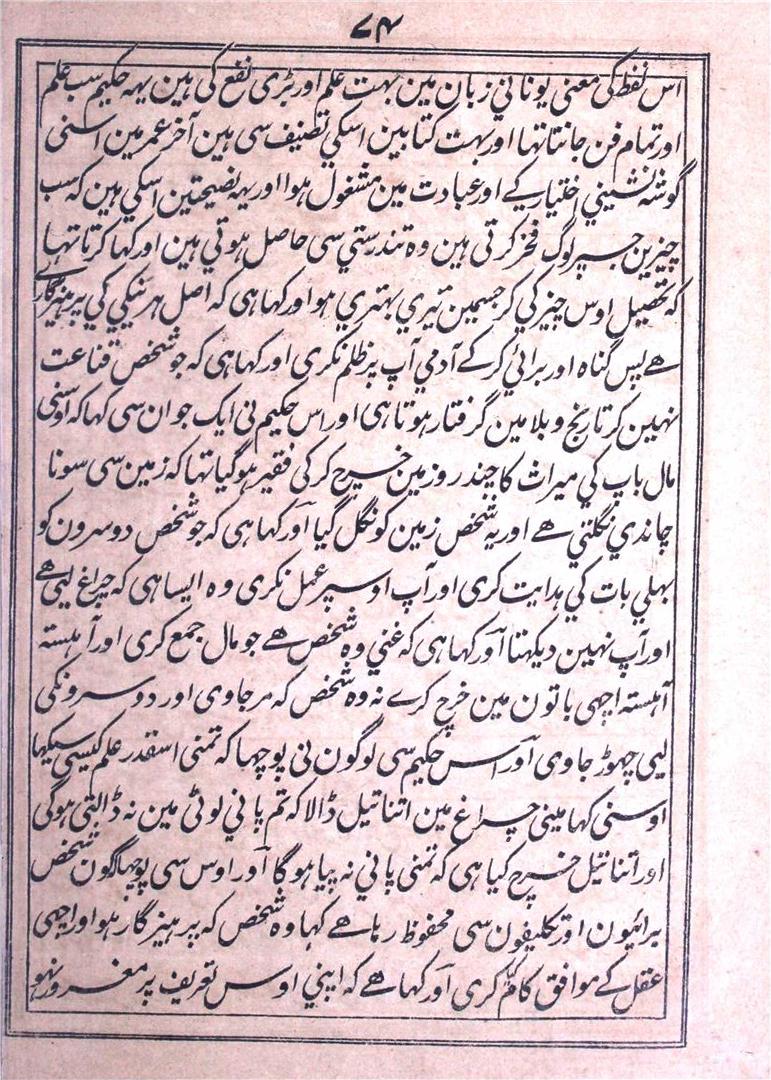 ۷۴
اس لفظ کی معنی یوناني زبان مین بہت علم اور بڑی نفع کی ہین یہہ حکیم سب علم
اور تمام فن جانتا تہا اور بہت کتابین اسکي تصنیف سی ہین آخر عمر مین اسنی
گوشہ نشیني اختیار کے اور عبادت مین مشغول ہوا اور یہہ نصیحتین اسکي ہین کہ سب
چیزین جسپر لوگ فخر کرتی ہین وہ تندرستي سی حاصل ہوتي ہین اور کہا کرتا تہا
کہ تحصیل اوس چیز کی کر جسمین تیري بہتري ہو اور کہا ہی کہ اصل ہر نیکي کي پرہیزگاری
ھے پس گناہ اور برائي کرکے آدمي آپ پر ظلم نکری اور کہا ہی کہ جو شخص قناعت
نہین کرتا رنج و بلا مین گرفتار ہوتا ہی اور اس حکیم نی ایک جوان سی کہا کہ اوسنی
مال باپ کي میراث کا چند روز مین خرچ کر کی فقیر ہو گیا تہا کہ زمین سی سونا
چاندي نگلتي ھے اور یہ شخص زمین کو نگل گیا اور کہا ہی کہ جو شخص دوسرون کو
بہلي بات کي ہدایت کری اور آپ اوسپر عمل نکری وہ ایسا ہی کہ چراغ لیي ھے
اور آپ نہین دیکہتا اور کہا ہی کہ غني وہ شخص ھے جو مال جمع کری اور آہستہ
آہستہ اچہی باتون مین خرچ کرے نہ وہ شخص کہ مر جاوی اور دوسرونکی
لیی چہوڑ جاوی اور اس حکیم سی لوگون نی پوچہا کہ تمنی اسقدر علم کیسی سیکہا
اوسنی کہا مینی چراغ مین اتنا تیل ڈالا کہ تم پاني لوٹي مین نہ ڈالتی ہوگی
اور اتنا تیل خرچ کیا ہی کہ تمنی پاني نہ پیا ہو گا اور اوس سی پوچہا کون شخص
برائیون اور تکلیفون سی محفوظ رہا ھے کہا وہ شخص کہ پرہیزگار ہو اور اچہی
عقل کے موافق کام کری اور کہا ھے کہ اپنی اوس تعریف پر مغرور نہو